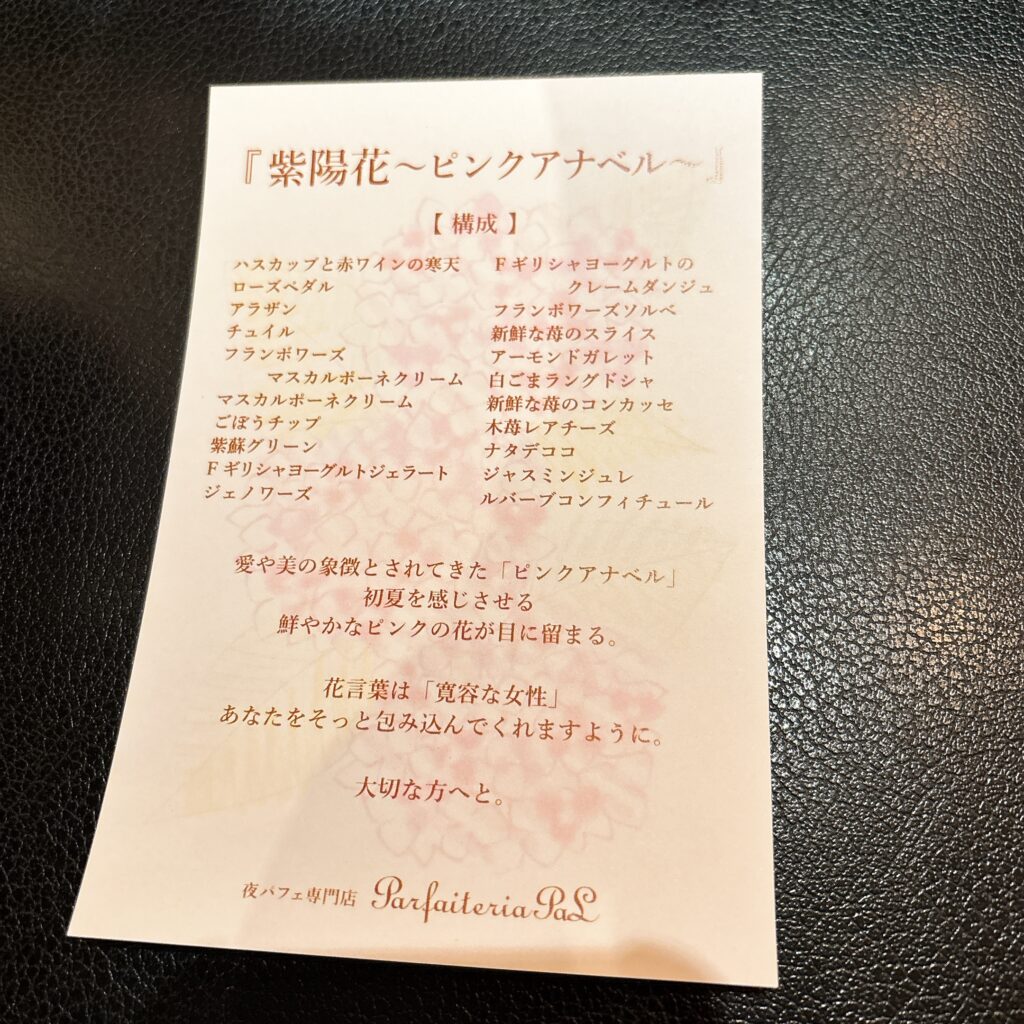 『紫陽花～ピンクアナベル～』
【 構成 】
ハスカップと赤ワインの寒天
ローズペダル
アラザン
チュイル
フランボワーズ
マスカルポーネクリーム
マスカルポーネクリーム
ごぼうチップ
紫蘇グリーン
Ｆギリシャヨーグルトジェラート
ジェノワーズ
Ｆギリシャヨーグルトの
クレームダンジュ
フランボワーズソルベ
新鮮な苺のスライス
アーモンドガレット
白ごまラングドシャ
新鮮な苺のコンカッセ
木苺レアチーズ
ナタデココ
ジャスミンジュレ
ルバーブコンフィチュール
愛や美の象徴とされてきた「ピンクアナベル」
初夏を感じさせる
鮮やかなピンクの花が目に留まる。
花言葉は「寛容な女性」
あなたをそっと包み込んでくれますように。
大切な方へと。
夜パフェ専門店 Parfaiteria PaL